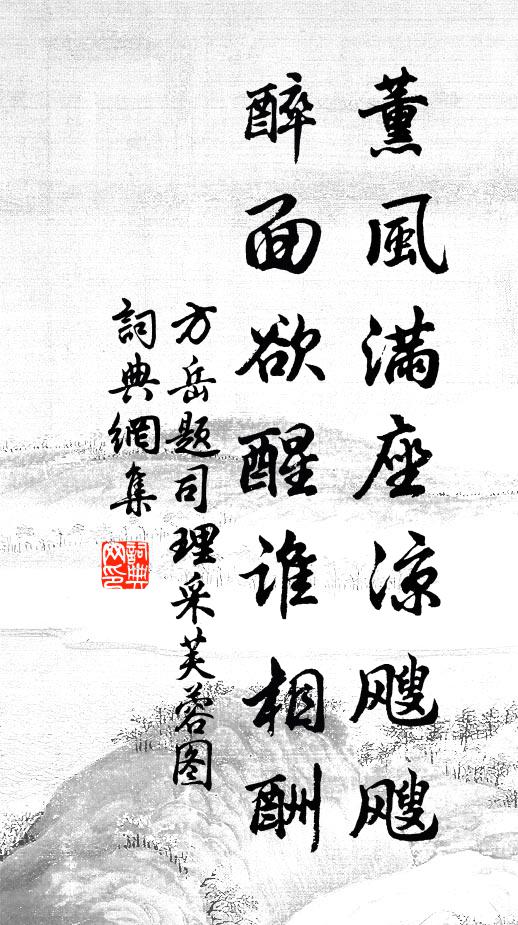 薰風滿座涼飕飕
醉面欲醒谁相酬
方岳题司理采芙蓉图
詞典網集
詞典网印